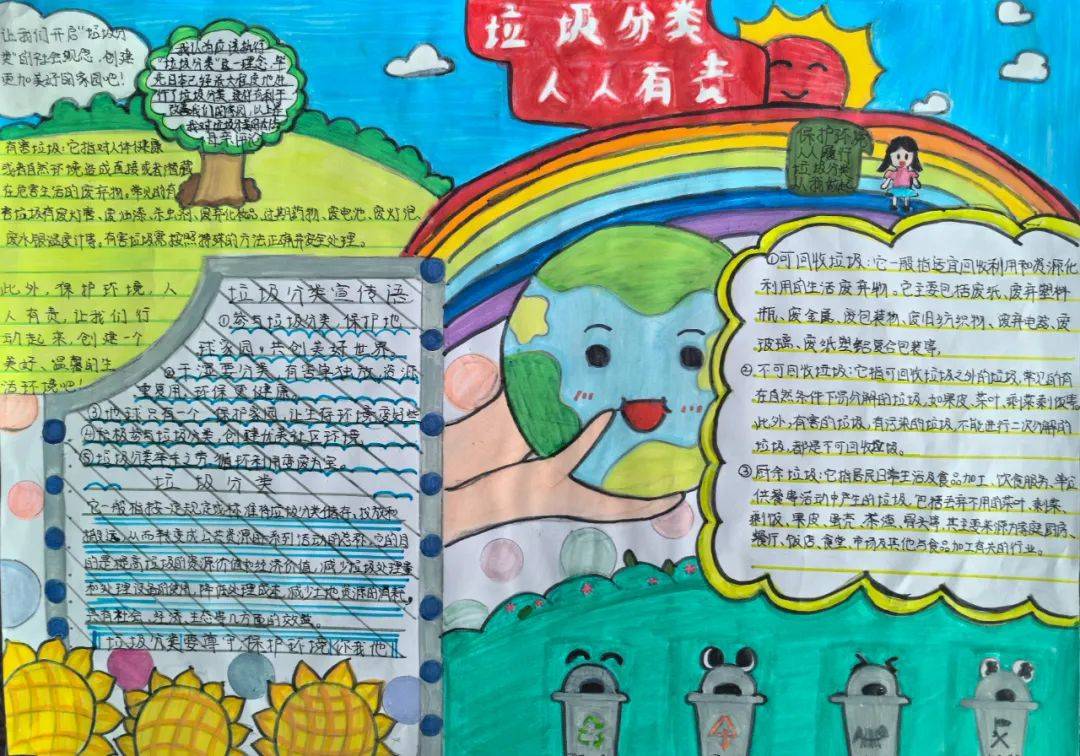 垃圾分类
人人有责
让我们开启"垃圾分
类"的社会观念,创建
更加美好的家园吧!
我认为应该执行
"垃圾分类"这一理念,毕
改善我们的家园,以上是
有害垃圾:它指对人体健康
或者自然环境造成直接或者潜藏
在危害生活的废弃物,常见的有
害垃圾有废灯管、废油漆、杀虫剂、废弃化妆品、过期药物、废电池、废灯泡、
废水银温度计等,有害垃圾需按照特殊的方法正确并安全处理。
此外,保护环境,人
人有责,让我们行
动起来,创建一个
美好、温馨的生
活环境吧!
保护环境
人人履行
垃圾分类
从我做起
垃圾分类宣传语
①参与垃圾分类,保护地
球家园,共创美好世界。
②干湿要分类,有害单独放,资源
重复用,环保更健康。
③地球只有一个,保护家园,让生存环境变好些
④积极参与垃圾分类,创建优美社区环境。
⑤垃圾分类举手之劳,循环利用变废为宝。
垃圾分类
它一般指按一定规定或标准将垃圾分类储存、投放和
搬运,从而转变成公共资源的系列活动的总称,它的目
的是提高垃圾的资源价值和经济价值,减少垃圾处理量
和处理设备的使用,降低处理成本,减少土地资源的消耗,
具有社会、经济、生态等几方面的效益。
垃圾分类要遵守,保护环境你我他
①可回收垃圾:它一般指适宜回收利用和资源化
利用的生活废弃物。它主要包括废纸、废弃塑料
瓶、废金属、废包装物、废旧纺织物、废弃电器、废
玻璃、废纸塑铝复合包装等,
②不可回收垃圾:它指可回收垃圾之外的垃圾,常见的有
在自然条件下易分解的垃圾,如果皮、菜叶、剩菜剩饭等。
此外,有害的垃圾,有污染的垃圾,不能进行二次分解的
垃圾,都是不可回收垃圾。
③厨余垃圾:它指居民日常生活及食品加工、饮食服务、单位
供餐等活动中产生的垃圾,包括丢弃不用的菜叶、剩菜、
剩饭、果皮、蛋壳、茶渣、骨头等,其主要来源为家庭厨房、
餐厅、饭店、食堂、市场及其他与食品加工有关的行业。